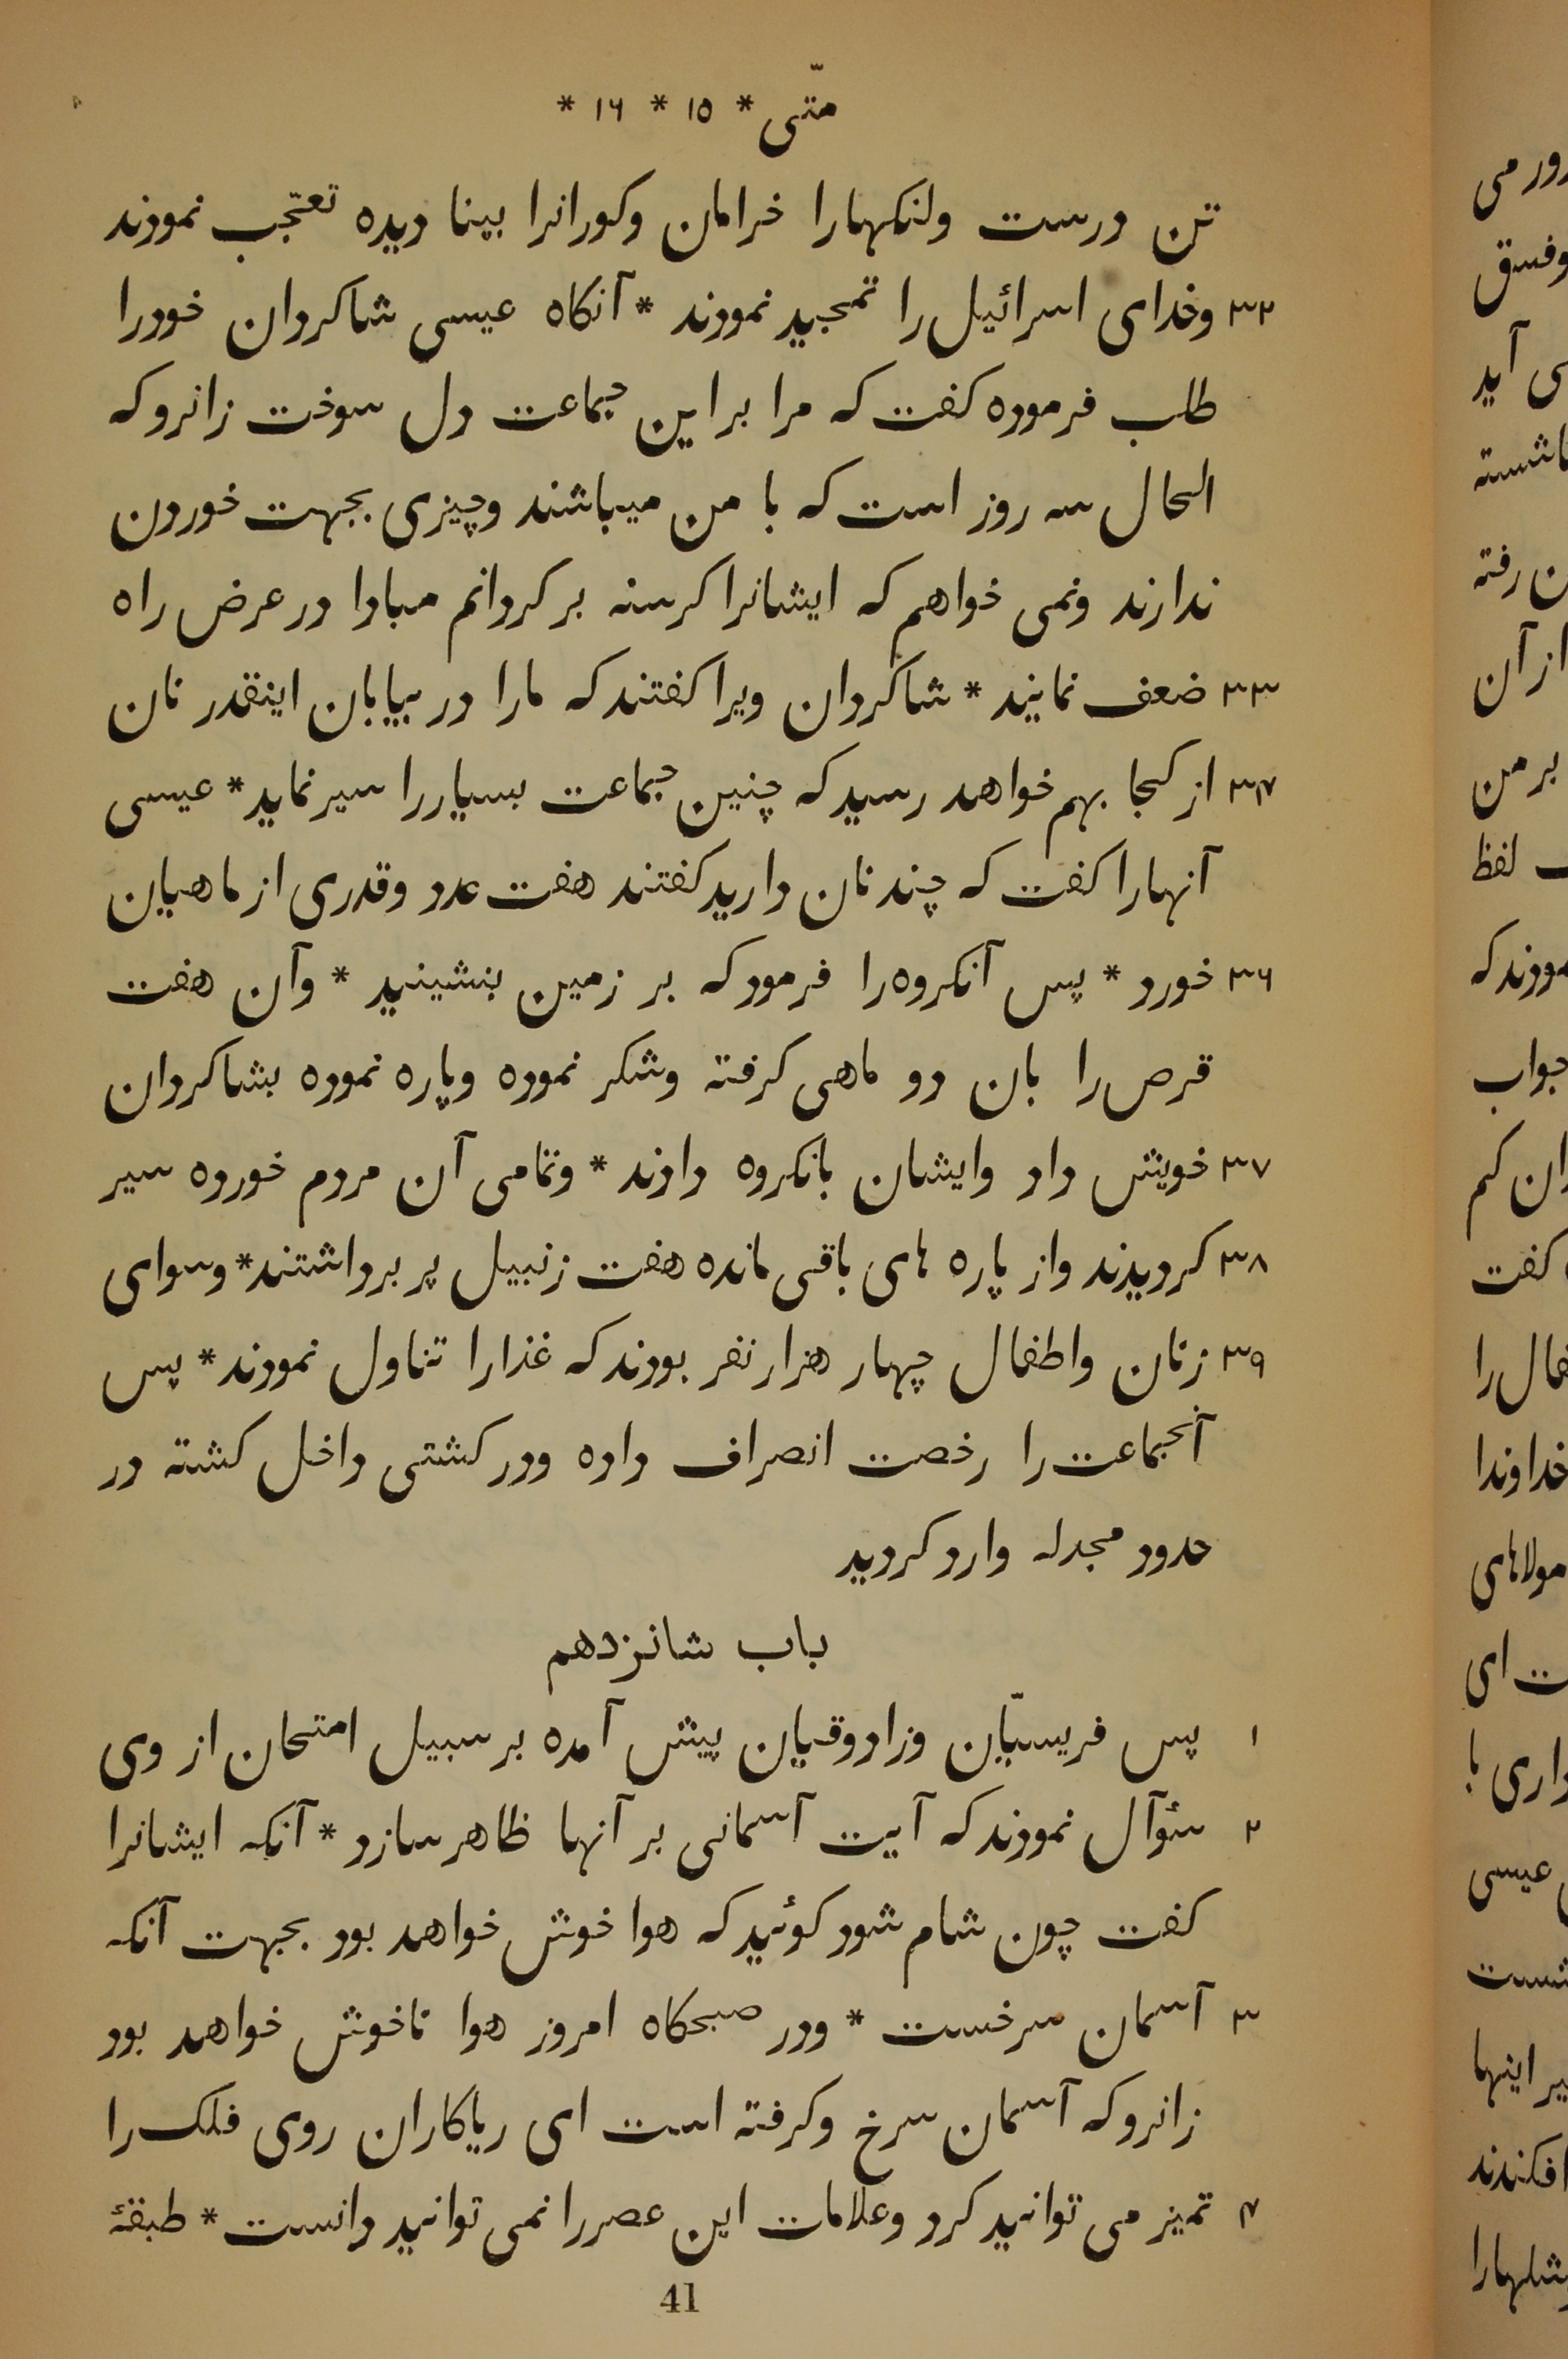 متّی * ۱۵ * ۱۶ *
تن درست ولنکهارا خرامان وکورانرا بینا دیده تعجّب نمودند
۳۲ وخدای اسرائیل را تمجید نمودند * آنکاه عیسی شاکردان خودرا
طلب فرموده کفت که مرا براین جماعت دل سوخت زانروکه
الحال سه روز است که با من میباشند وچیزی بجهت خوردن
ندارند ونمی خواهم که ایشانرا کرسنه برکردانم مبادا در عرض راه
۳۳ ضعف نمایند * شاکردان ویرا کفتند که مارا در بیابان اینقدر نان
۳۴ از کجا بهم خواهد رسید که چنین جماعت بسیاررا سیر نماید * عیسی
آنهارا کفت که چند نان دارید کفتند هفت عدد وقدری از ماهیان
۳۶ خورد * پس آنکروه را فرمود که بر زمین بنشینید * وآن هفت
قرص را بان دو ماهی کرفته وشکر نموده وپاره نموده بشاکردان
۳۷ خویش داد وایشان بانکروه دادند * وتمامی آن مردم خورده سیر
۳۸ کردیدند واز پاره های باقی مانده هفت زنبیل پر برداشتند * وسوای
۳۹ زنان واطفال چهار هزار نفر بودند که غذارا تناول نمودند * پس
آنجماعت را رخصت انصراف داده ودر کشتی داخل کشته در
حدود مجدله وارد کردید
باب شانزدهم
۱ پس فریسیّان وزادوقیان پیش آمده بر سبیل امتحان از وی
۲ سئوآل نمودند که آیت آسمانی بر آنها ظاهر سازد * آنکه ایشانرا
کفت چون شام شود کوئید که هوا خوش خواهد بود بجهت آنکه
۳ آسمان سرخست * ودر صبحکاه امروز هوا ناخوش خواهد بود
زانروکه آسمان سرخ وکرفته است ای ریاکاران روی فلک را
۴ تمیز می توانید کرد وعلامات این عصررا نمی توانید دانست * طبقهٔ
41